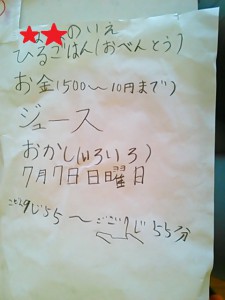 のいえ
ひるごはん(おべんとう)
お金(500〜10円まで)
ジュース
おかし(いろいろ)
7月7日日曜日
9じ55〜ごごじ55分